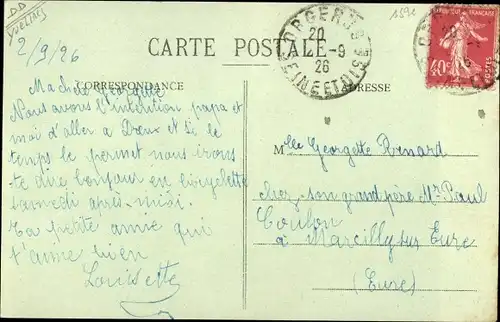 DD
YVELINES
1592
2/9/26
CARTE POSTALE
CORRESPONDANCE
ADRESSE
ORGERUS
20
2-9
26
SEINE ET OISE
FRANÇAISE
40c
POSTES
Ma chère Georgette
Nous avons l'intention papa et
moi d'aller a Dreux et si le
temps le permet nous irons
te dire bonjour en bicyclette
samedi après-midi.
Ta petite amie qui
t'aime bien
Louisette
Mlle Georgette Renard
chez son grand père Mr Paul
Coulon
à Marcilly sur Eure
(Eure)